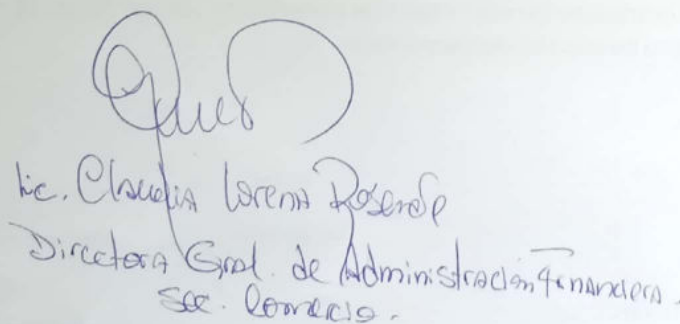 Lic. Claudia Lorena Rosende
Directora Gral. de Administración Financiera.
Sec. Comercio.